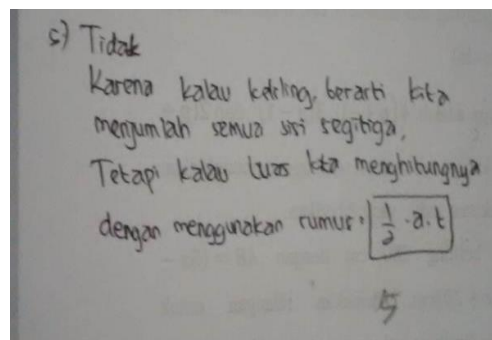 5) Tidak
Karena kalau keliling, berarti kita
menjumlah semua sisi segitiga,
Tetapi kalau luas kita menghitungnya
dengan menggunakan rumus: 1/2 . a. t
5